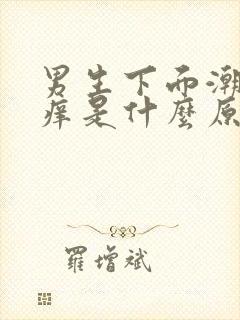 男生下而潮
痒是什麼原
羅增斌